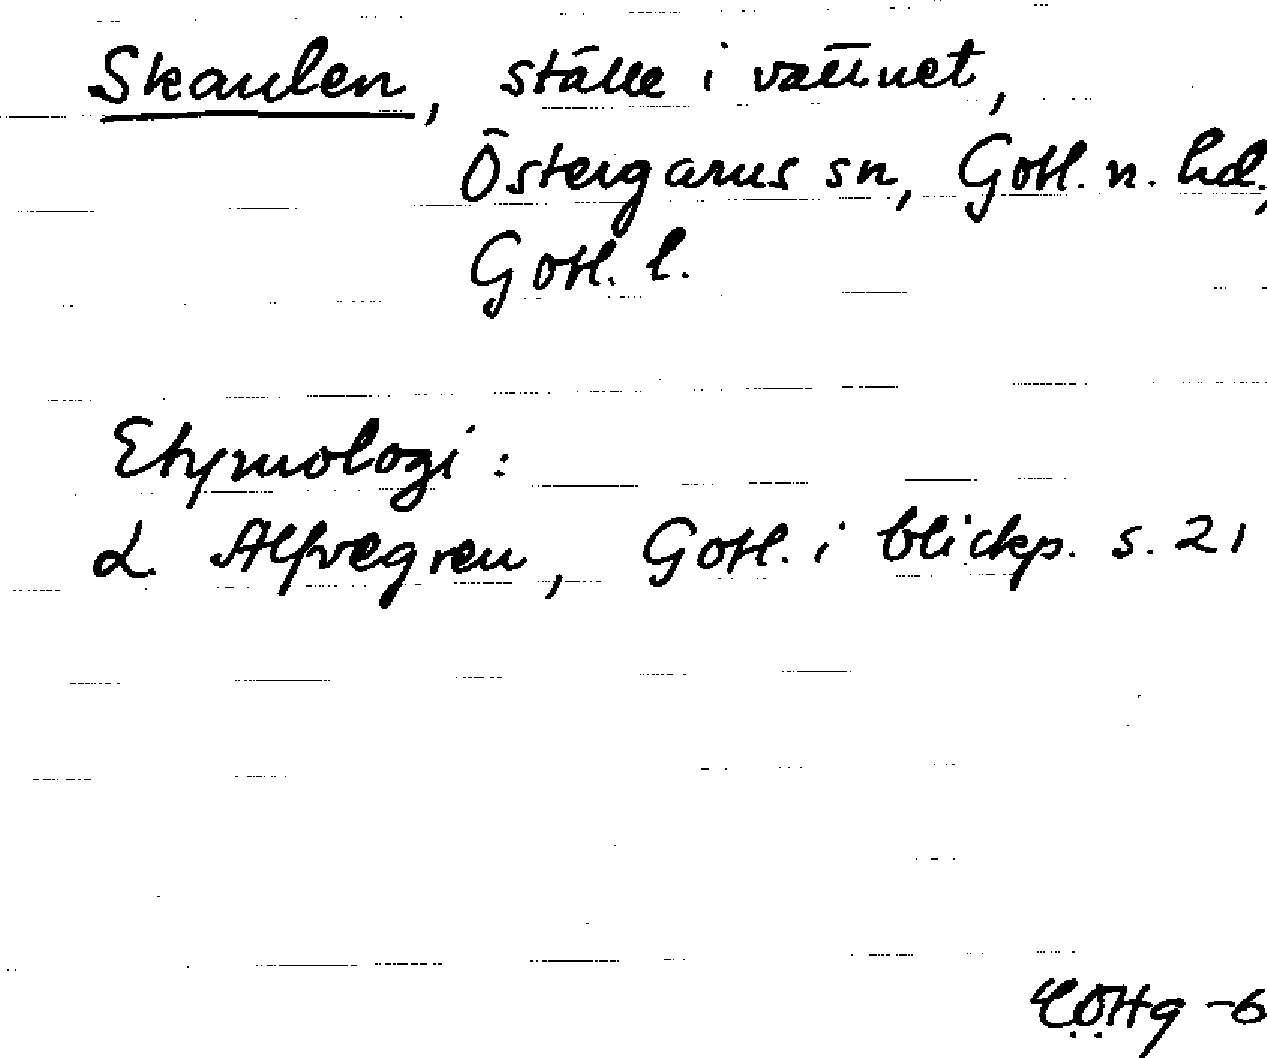 Skaulen, ställe i vattnet,
Östergarns sn, Gotl. n. hd,
Gotl. l.
Etymologi:
L. Alfvegren, Gotl. i blickp. s. 21